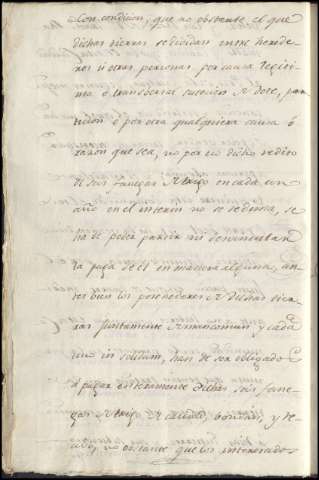 Con condicion, que no obstante el que
dichas tierras se dividan entre herede-
ros ú otras personas por causa legiti-
ma ó transversal succecion de dote, par-
ticion ó por otra qualquiera causa ó
razon que sea, no por eso dicho redito
de seis fanegas de trigo en cada un
año en el interin no se redima, se
ha de poder partir ni
la paga de él en manera alguna, an-
tes bien los poseedores de dichas tier-
ras juntamente de mancomun y cada
uno in solidum, han de ser obligados
á pagar enteramente dichas seis fane-
gas de trigo de calidad, bondad, y
no obstante que los interesados